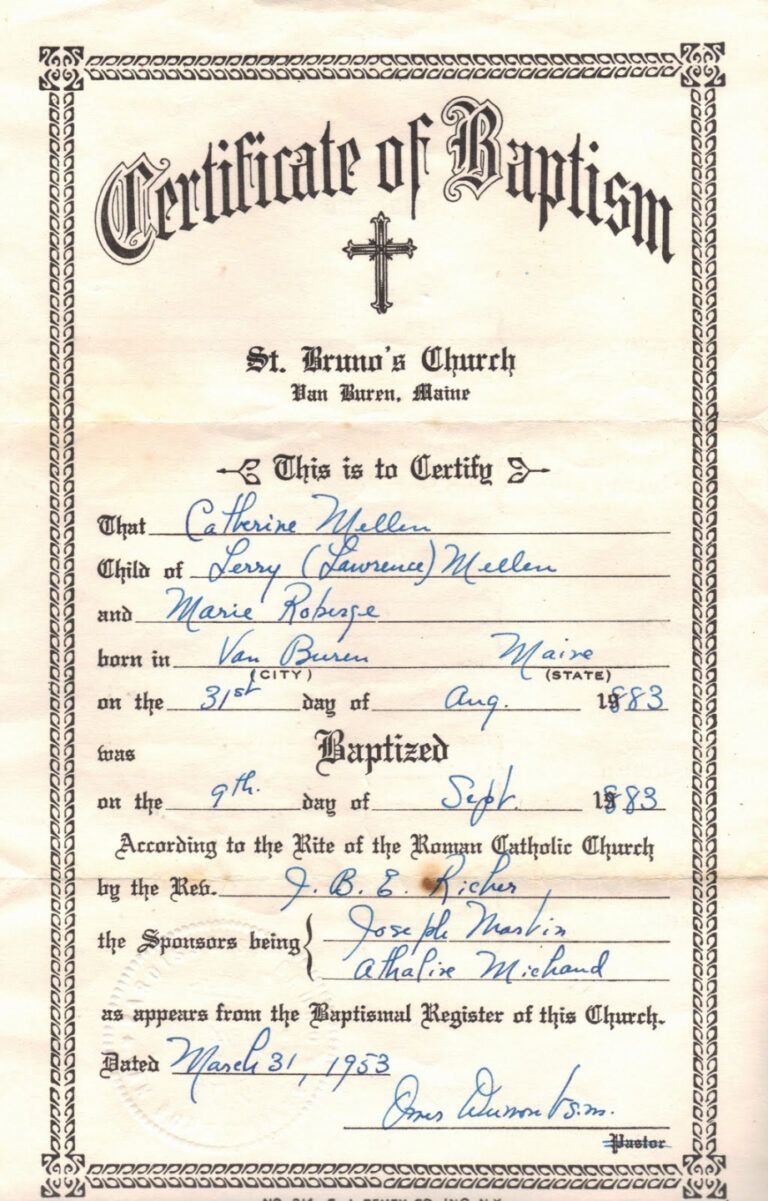 Certificate of Baptism
St. Bruno's Church
Van Buren, Maine
This is to Certify
That Catherine Mellen
Child of Lerry (Lawrence) Mellen
and Marie Roberge
born in Van Buren Maine
(CITY) (STATE)
on the 31st day of Aug. 1883
was Baptized
on the 9th. day of Sept. 1883
According to the Rite of the Roman Catholic Church
by the Rev. J. B. E. Richer
the Sponsors being Joseph Martin
Athalire Michaud
as appears from the Baptismal Register of this Church.
Dated March 31, 1953
Omer s.m.
Pastor